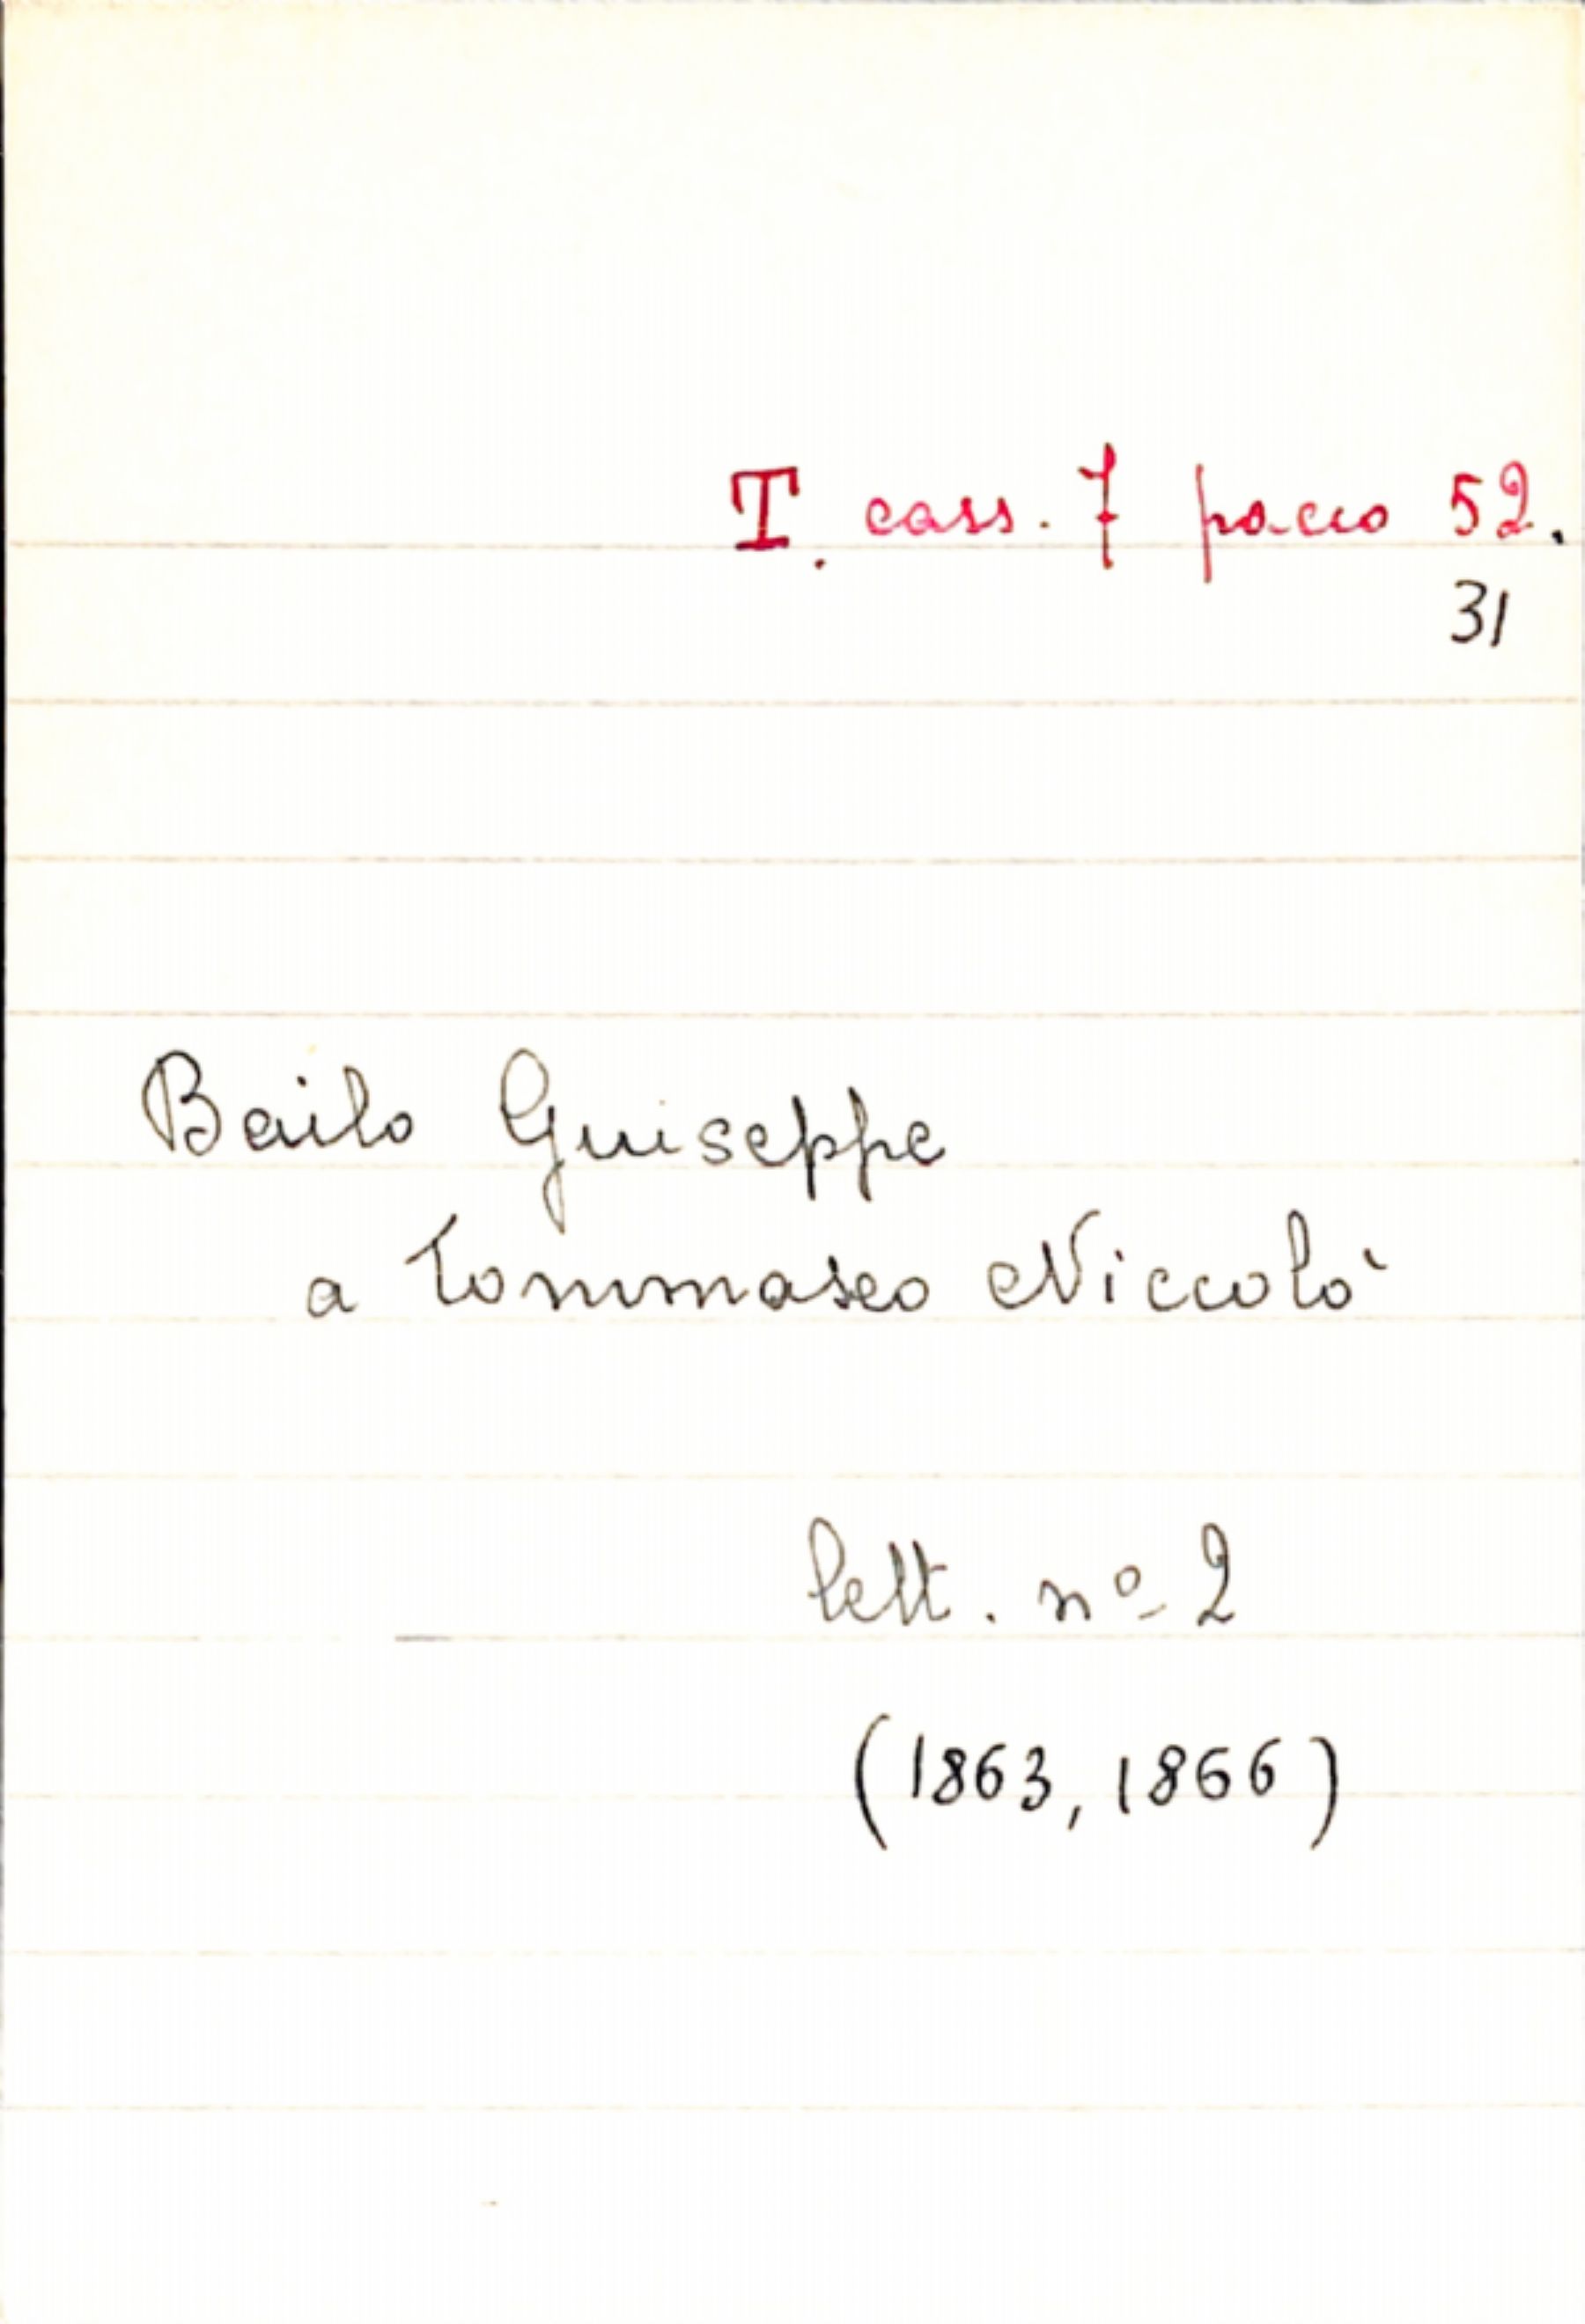 T. cass. 7 pacco 52.
31
Bailo Giuseppe
a Tommaseo Niccolò
lett. nº 2
(1863, 1866)